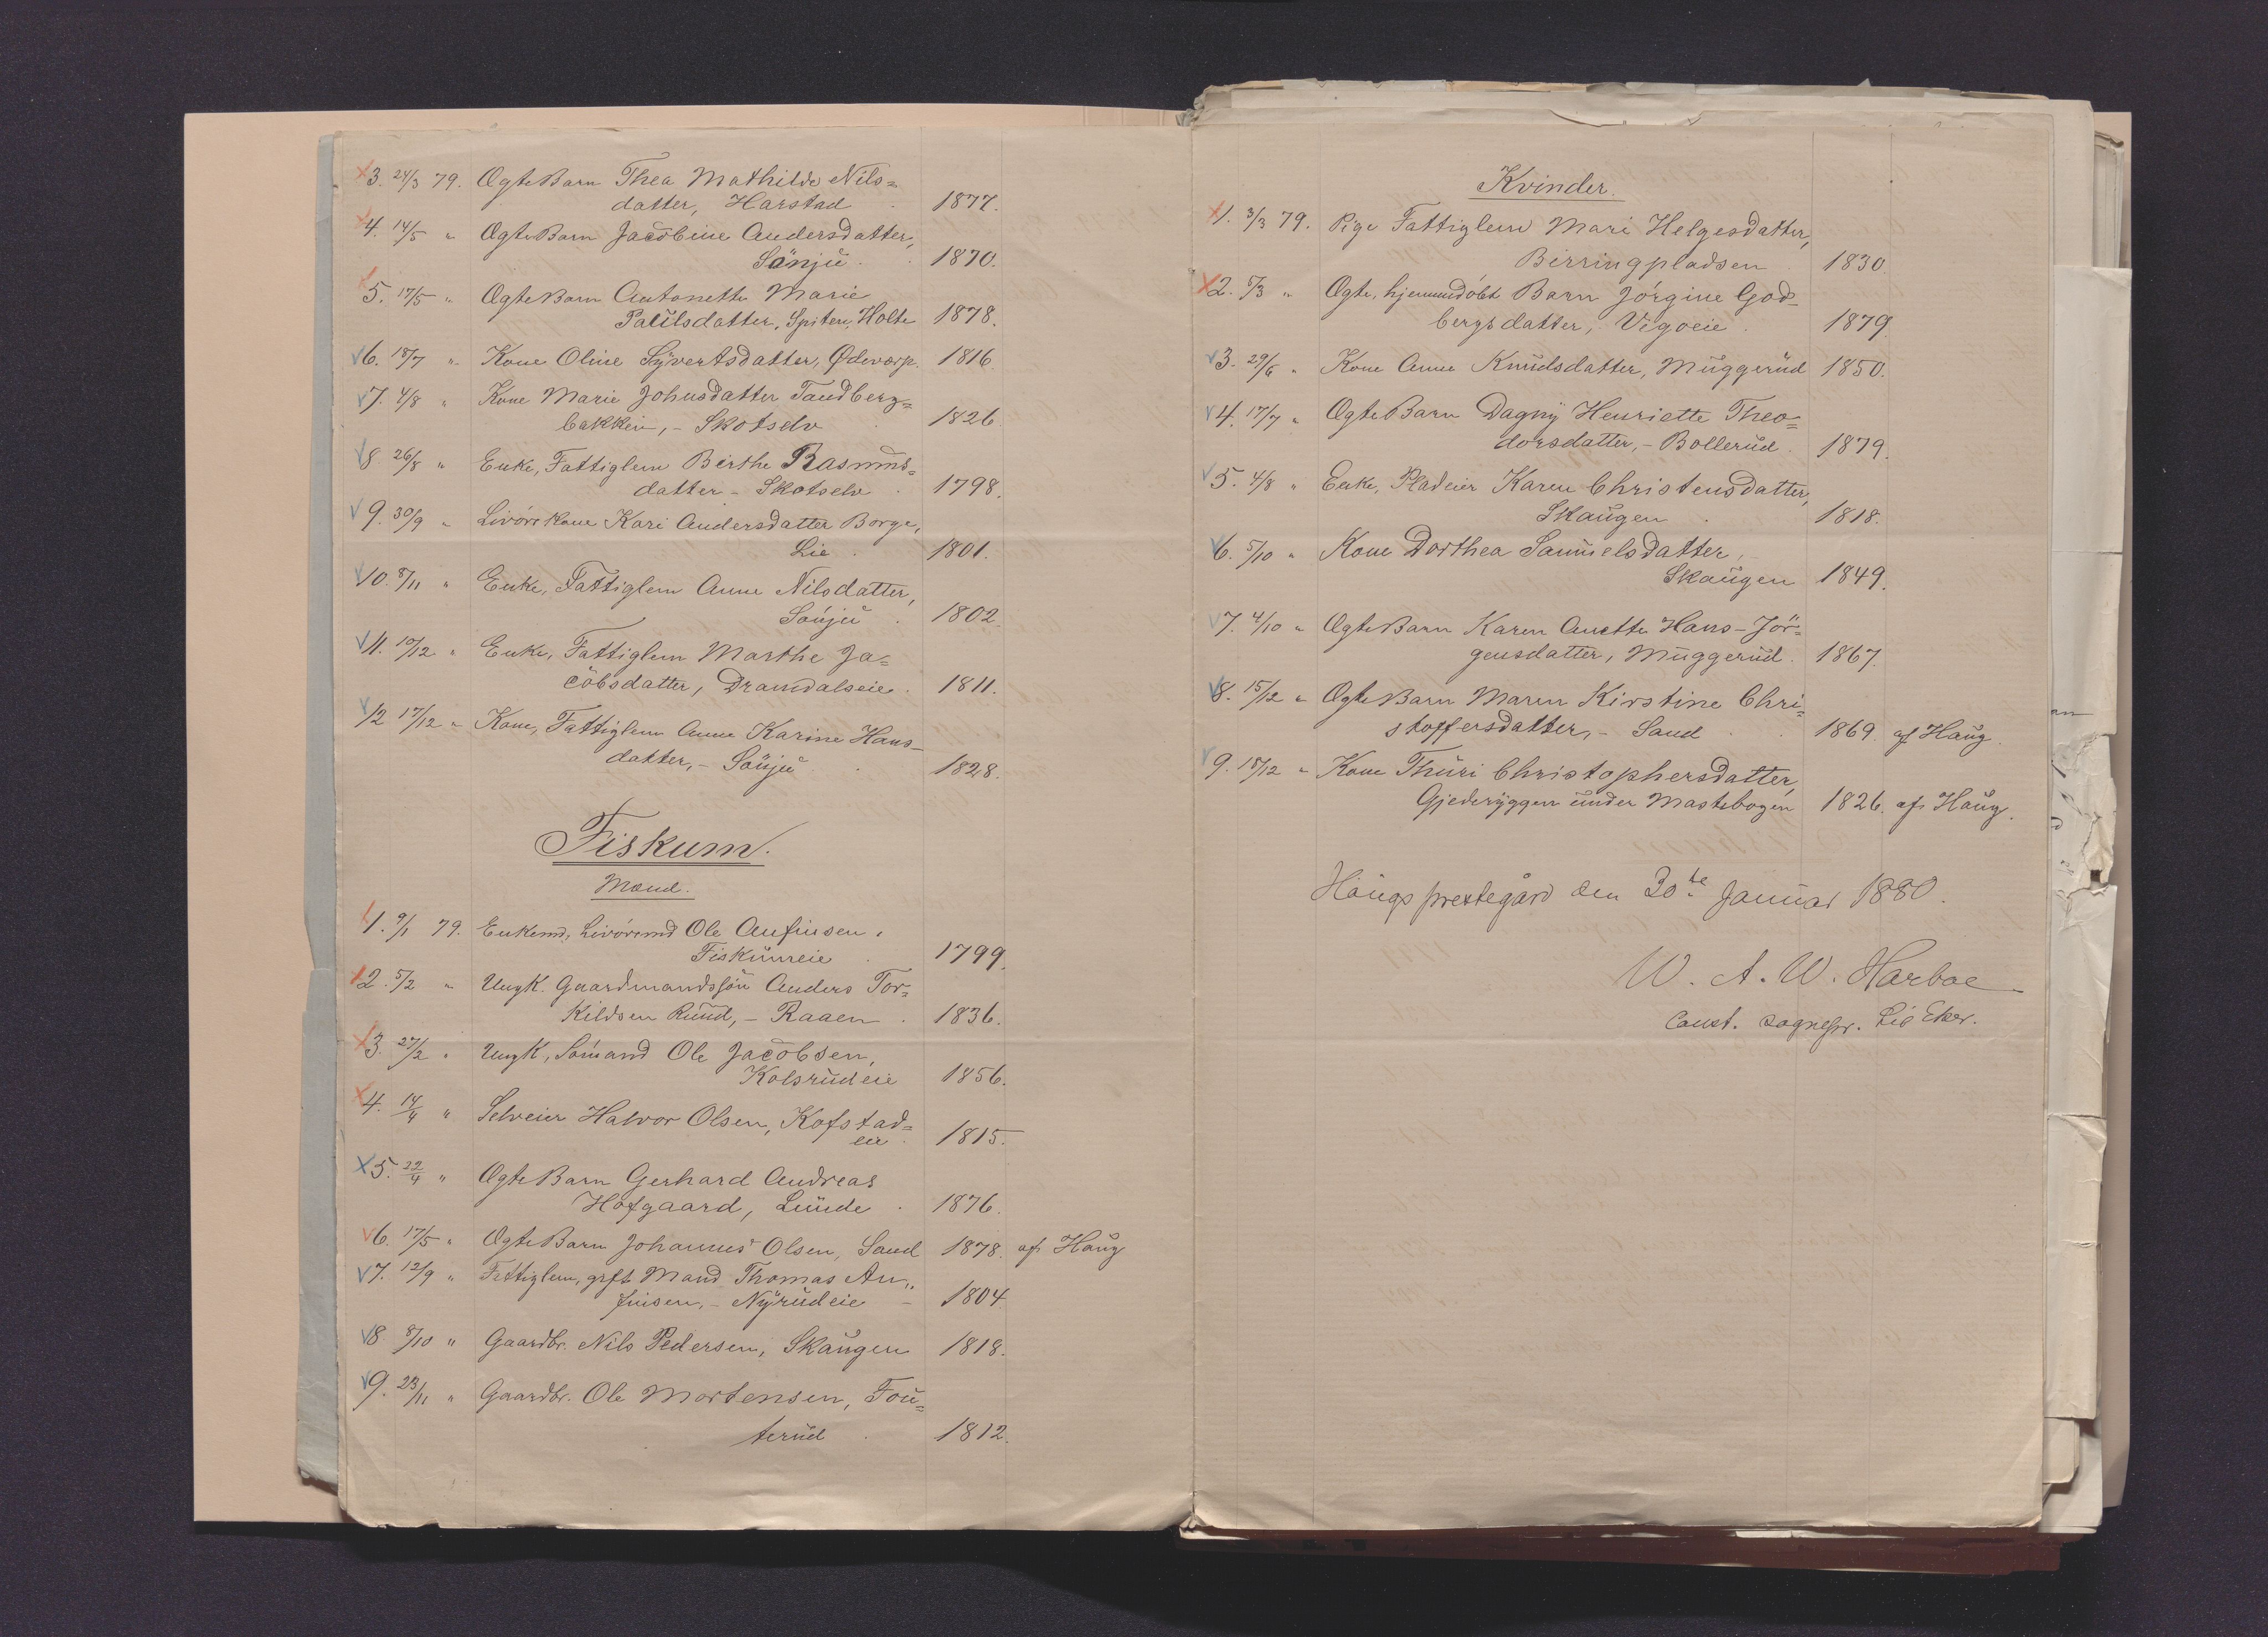 3. 24/3 79. Ægte Barn Thea Mathilde Nils=
datter, Harstad 1877.
4. 14/5 " Ægte Barn Jacobine Andersdatter,
Sönju 1870.
5. 17/5 " Ægte Barn Antonette Marie
Paulsdatter, Spiten, Holte 1878.
6. 18/7 " Kone Oline Syvertsdatter, Ødevarp. 1816.
7. 4/8 " Kone Marie Johnsdatter Tandberg=
bakken, - Skotselv 1826.
8. 26/8 " Enke, Fattiglem Birthe Rasmus=
datter - Skotselv 1798.
9. 30/9 " Livörskone Kari Andersdatter Borge,
Lie 1801.
10. 8/11 " Enke, Fattiglem Anne Nilsdatter,
Sönju 1802.
11. 10/12 " Enke, Fattiglem Marthe Ja=
cobsdatter, Dramdalseie 1811.
12 17/12 " Kone, Fattiglem Anne Karine Hans-
datter, - Sönju 1828.
Fiskum.
Mænd.
1. 9/1 79. Enkemd, Livörsmd Ole Anfinsen,
Fiskumeie 1799.
2. 5/2 " Ungk. Gaardmandssön Anders Tor=
kildsen Rund, - Raaen 1836.
3. 27/2 " Ungk, Sömand Ole Jacobsen,
Kolsrudeie 1856.
4. 14/4 " Selveier Halvor Olsen, Kofstad=
eie 1815.
5. 22/4 " Ægte Barn Gerhard Andreas
Hofgaard, Lunde 1876.
6. 17/5 " Ægte Barn Johannes Olsen, Sand 1878. af Haug
7. 12/9 " Fattiglem, gift Mand Thomas An=
finsen, - Nyrudeie - 1804.
8 8/10 " Gaardbr. Nils Pedersen, Skaugen 1818.
9. 23/11 " Gaardbr. Ole Mortensen, Fou=
terud 1812.
Kvinder.
1. 3/3 79. Pige Fattiglem Mari Helgesdatter,
Berringpladsen 1830
2. 5/3 " Ægte, hjemmedöbt Barn Jörgine God=
bergsdatter, Vigoeie 1879.
3. 29/6 " Kone Anne Knudsdatter, Muggerud 1850.
4. 17/7 " Ægte Barn Dagny Henriette Theo=
dorsdatter, - Bollerud 1879.
5. 4/8 " Enke, Pladeier Karen Christensdatter,
Skaugen 1818.
6. 5/10 " Kone Dorthea Samuelsdatter,
Skaugen 1849.
7. 4/10 " Ægte Barn Karen Anette Hans-Jör=
gensdatter, Muggerud. 1867.
8. 15/12 " Ægte Barn Maren Kirstine Chri=
stoffersdatter, - Sand 1869. af Haug.
9. 18/12 " Kone Thuri Christophersdatter,
Gjederyggen under Mastebogen 1826. af Haug.
Haugs prestegård den 30te Januar 1880.
W. A. W. Harboe
Const. sognepr. til Eker.